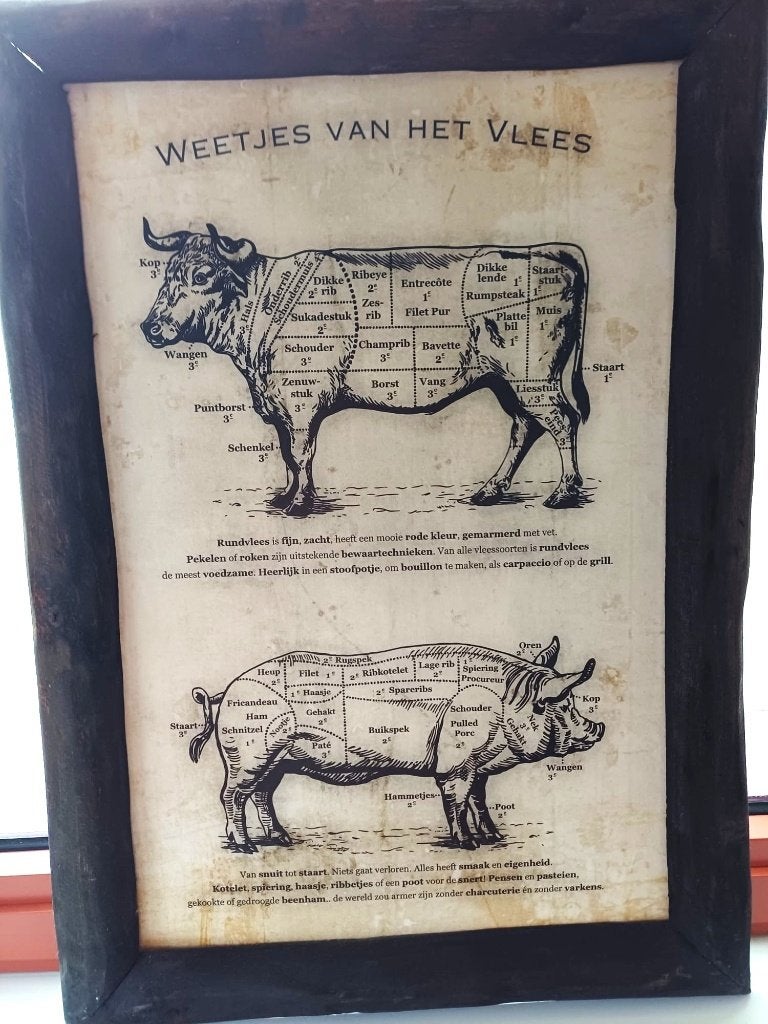 WEETJES VAN HET VLEES
Kop
3e
Wangen
3e
Hals
3e
Onderrib
Schoudermuis
2e
Dikke
rib
2e
Ribeye
2e
Zes-
rib
Entrecôte
1e
Filet Pur
Dikke
lende
1e
Rumpsteak
Staart-
stuk
1e
Sukadestuk
2e
Platte
bil
1e
Muis
1e
Schouder
3e
Champrib
3e
Bavette
2e
Staart
1e
Zenuw-
stuk
3e
Borst
3e
Vang
3e
Liesstuk
3e
Puntborst
3e
Pees
eind
3e
Schenkel
3e
Rundvlees is fijn, zacht, heeft een mooie rode kleur, gemarmerd met vet.
Pekelen of roken zijn uitstekende bewaartechnieken. Van alle vleessoorten is rundvlees
de meest voedzame. Heerlijk in een stoofpotje, om bouillon te maken, als carpaccio of op de grill.
Oren
2e
2e Rugspek
Heup
2e
Filet 1e
2e Ribkotelet
Lage rib
2e
1e
Spiering
Procureur
1e Haasje
1e Spareribs
Kop
3e
Fricandeau
Ham
Schnitzel
1e
Nootje
2e
Gehakt
2e
Paté
3e
Buikspek
2e
Schouder
Pulled
Porc
2e
Nek
Gehakt
3e
Staart
3e
Wangen
3e
Hammetjes
2e
Poot
2e
Van snuit tot staart. Niets gaat verloren. Alles heeft smaak en eigenheid.
Kotelet, spiering, haasje, ribbetjes of een poot voor de snert! Pensen en pasteien,
gekookte of gedroogde beenham.. de wereld zou armer zijn zonder charcuterie én zonder varkens.